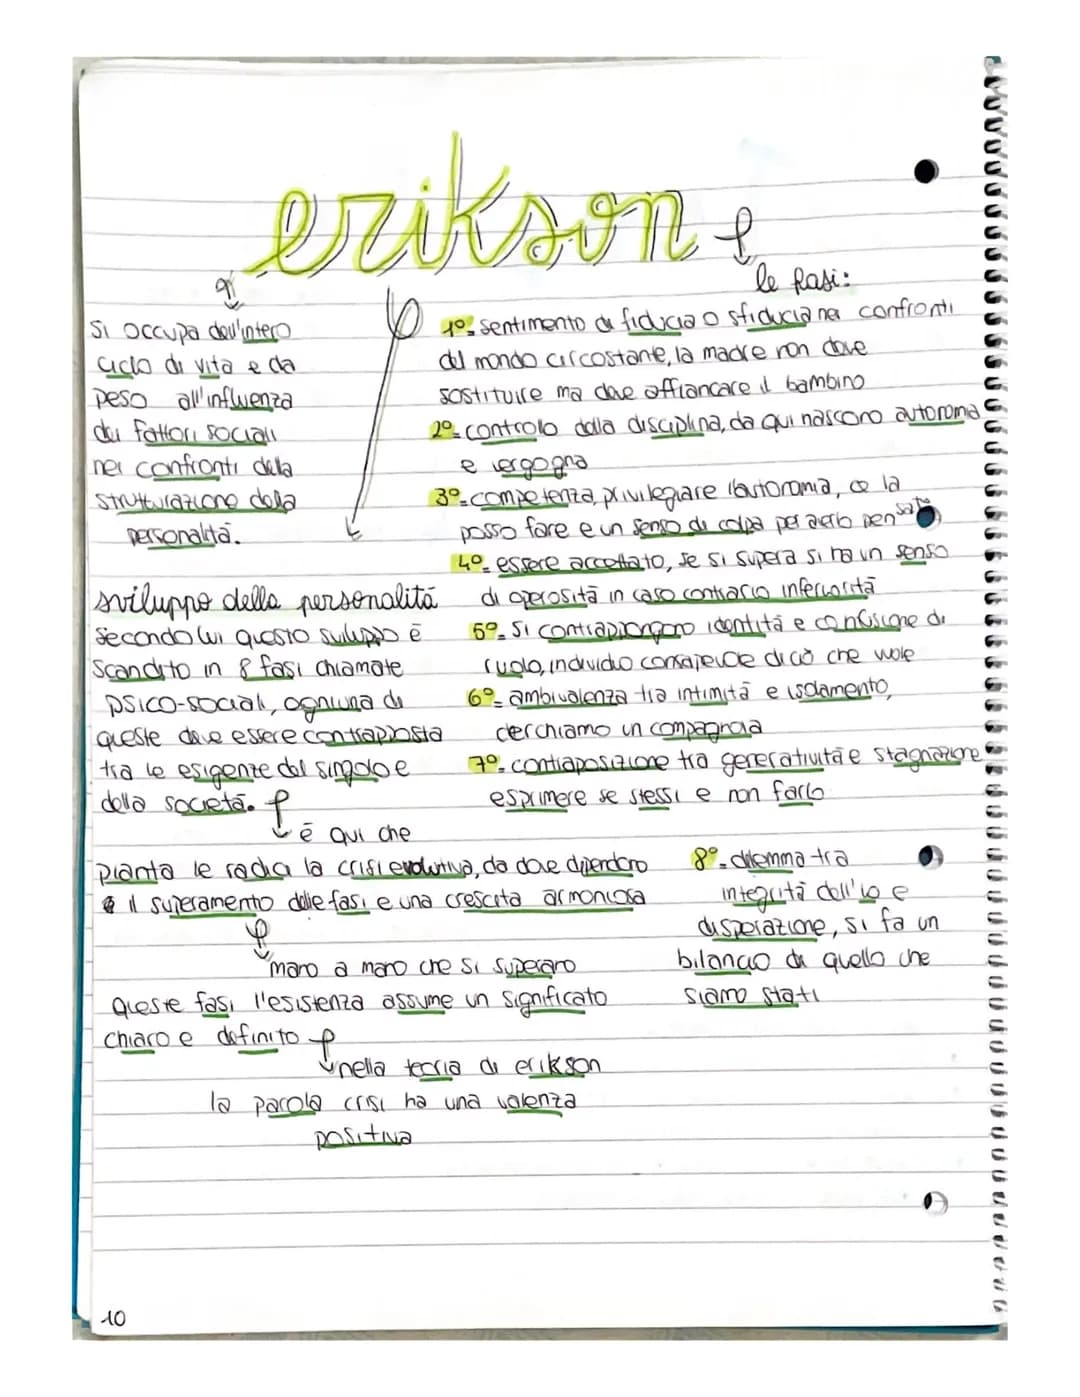 erikson
si occupa dell'intero
ciclo di vita e da
peso all'influenza
dei fattori sociali
nei confronti della
strutturazione della
personalità.
sviluppo della personalità
secondo lui questo sviluppo è
scandito in 8 fasi chiamate
psico-sociali, ogniuna di
queste deve essere contrapposta
tra le esigenze del singolo e
della società.
è qui che
pianta le radici la crisi evolutiva, da dove dipendono
il superamento delle fasi e una crescita armoniosa
mano a mano che si superano
queste fasi l'esistenza assume un significato
chiaro e definito
nella teoria di erikson
la parola crisi ha una valenza
positiva
le fasi:
1º- sentimento di fiducia o sfiducia nei confronti
del mondo circostante, la madre non deve
sostituire ma deve affiancare il bambino
2º- controllo della disciplina, da qui nascono autonomia
e vergogna
3º- competenza, privilegiare l'autonomia, ce la
posso fare e un senso di colpa per averlo pensato
4º- essere accettato, se si supera si ha un senso
di operosità in caso contrario inferiorità
5º- si contrappongono identità e confusione di
ruolo, individuo consapevole di ciò che vuole
6º- ambivalenza tra intimità e isolamento,
cerchiamo un compagno/a
7º- contraposizione tra generatività e stagnazione
esprimere se stessi e non farlo
8º- dilemma tra
integrità dell'io e
disperazione, si fa un
bilancio di quello che
siamo stati
10